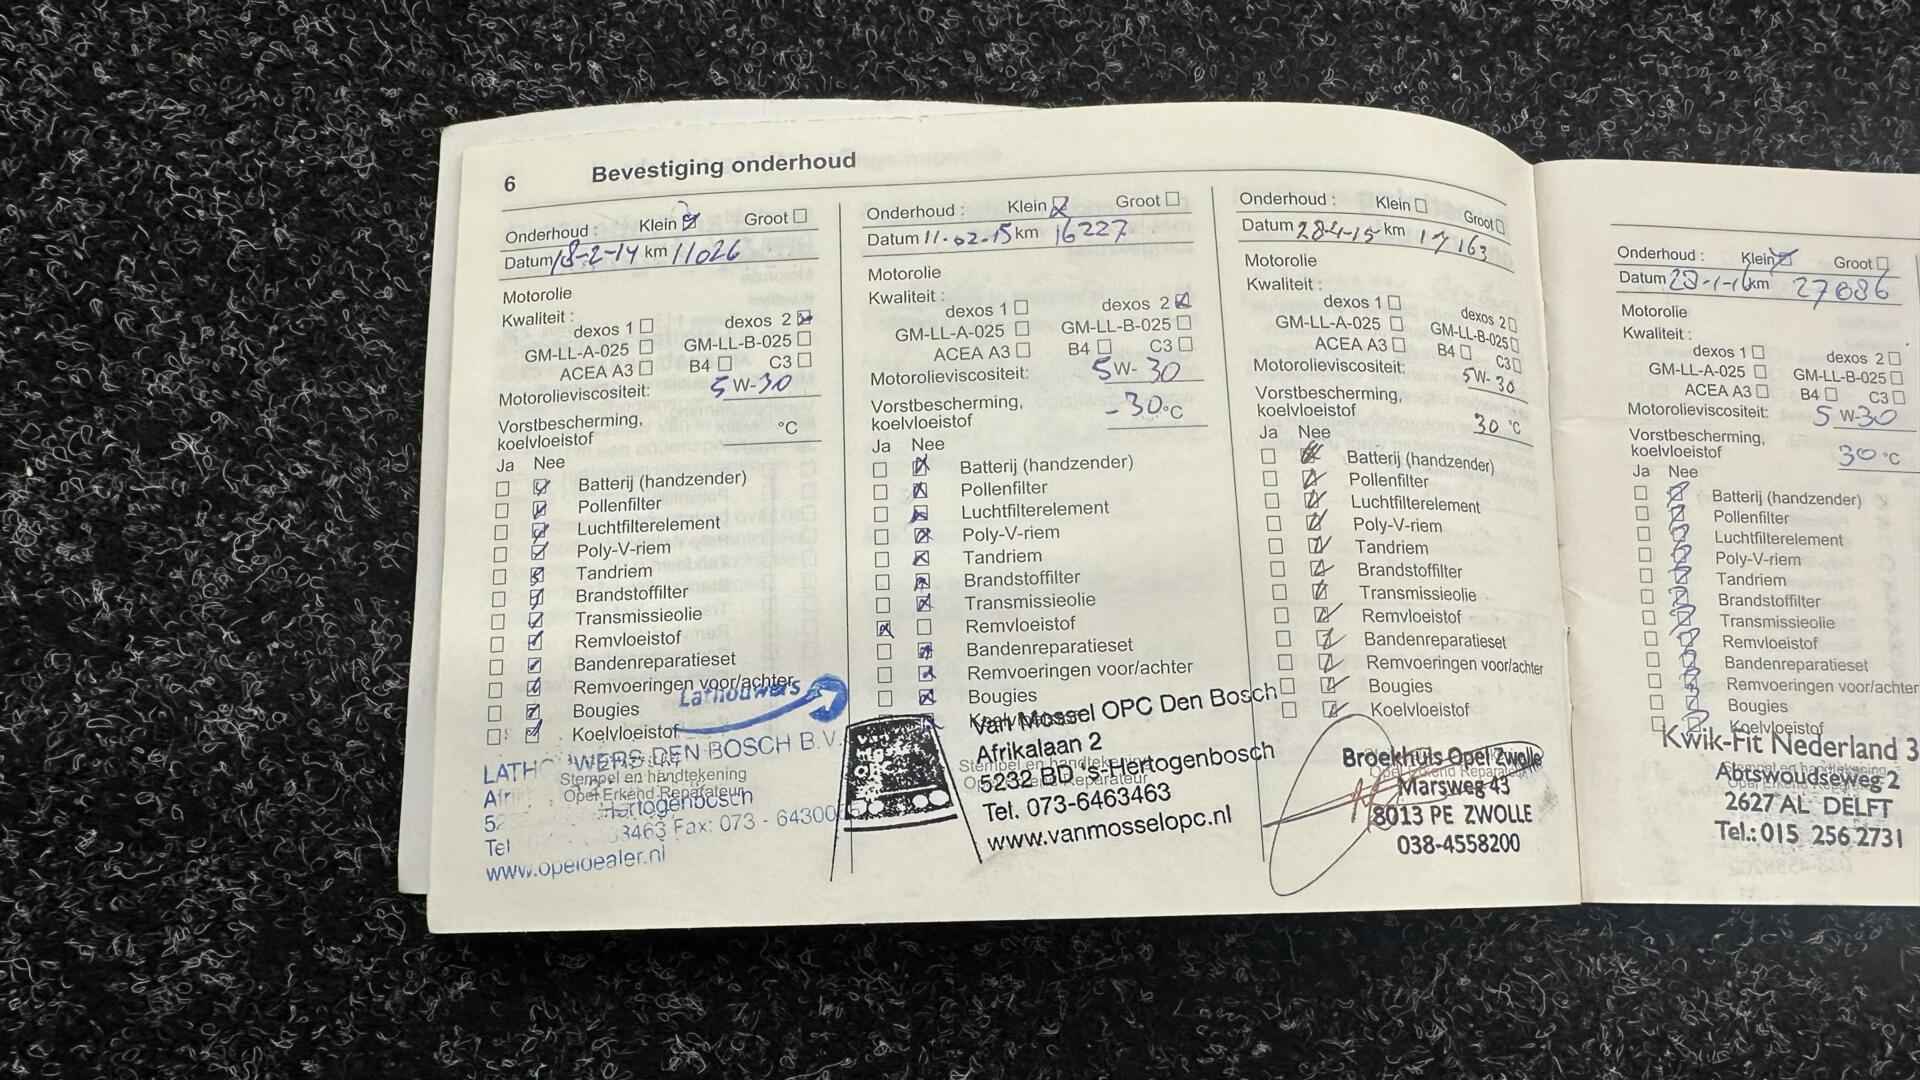 6 Bevestiging onderhoud
Onderhoud : Klein Groot
Datum 18-2-14 km 11026
Motorolie
Kwaliteit :
dexos 1 dexos 2
GM-LL-A-025 GM-LL-B-025
ACEA A3 B4 C3
Motorolieviscositeit: 5 W-30
Vorstbescherming,
koelvloeistof °C
Ja Nee
Batterij (handzender)
Pollenfilter
Luchtfilterelement
Poly-V-riem
Tandriem
Brandstoffilter
Transmissieolie
Remvloeistof
Bandenreparatieset
Remvoeringen voor/achter
Bougies
Koelvloeistof
Lathouwers
WERS DEN BOSCH B.V.
Stempel en handtekening
Opel Erkend Reparateur
Hertogenbosch
Tel 3463 Fax: 073 - 64300
www.opeldealer.nl
Onderhoud : Klein Groot
Datum 11-02-15 km 16227
Motorolie
Kwaliteit :
dexos 1 dexos 2
GM-LL-A-025 GM-LL-B-025
ACEA A3 B4 C3
Motorolieviscositeit: 5 W- 30
Vorstbescherming,
koelvloeistof -30 °C
Ja Nee
Batterij (handzender)
Pollenfilter
Luchtfilterelement
Poly-V-riem
Tandriem
Brandstoffilter
Transmissieolie
Remvloeistof
Bandenreparatieset
Remvoeringen voor/achter
Bougies
Koelvloeistof
Van Mossel OPC Den Bosch
Afrikalaan 2
Stempel en handtekening
5232 BD 's-Hertogenbosch
Opel Erkend Reparateur
Tel. 073-6463463
www.vanmosselopc.nl
Onderhoud : Klein Groot
Datum 28-4-15 km 17163
Motorolie
Kwaliteit :
dexos 1 dexos 2
GM-LL-A-025 GM-LL-B-025
ACEA A3 B4 C3
Motorolieviscositeit: 5W-30
Vorstbescherming,
koelvloeistof 30 °C
Ja Nee
Batterij (handzender)
Pollenfilter
Luchtfilterelement
Poly-V-riem
Tandriem
Brandstoffilter
Transmissieolie
Remvloeistof
Bandenreparatieset
Remvoeringen voor/achter
Bougies
Koelvloeistof
Broekhuis Opel Zwolle
Opel Erkend Reparateur
Marsweg 43
8013 PE ZWOLLE
038-4558200
Onderhoud : Klein Groot
Datum 28-1-16 km 27686
Motorolie
Kwaliteit :
dexos 1 dexos 2
GM-LL-A-025 GM-LL-B-025
ACEA A3 B4 C3
Motorolieviscositeit: 5 W-30
Vorstbescherming,
koelvloeistof 30 °C
Ja Nee
Batterij (handzender)
Pollenfilter
Luchtfilterelement
Poly-V-riem
Tandriem
Brandstoffilter
Transmissieolie
Remvloeistof
Bandenreparatieset
Remvoeringen voor/achter
Bougies
Koelvloeistof
Kwik-Fit Nederland 3
Stempel en handtekening
Abtswoudseweg 2
Opel Erkend Reparateur
2627 AL DELFT
Tel.: 015 256 2731